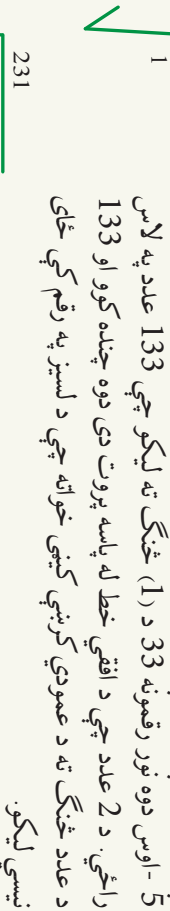 5 -اوس دوه نور رقمونه 33 د (1) څنګ ته ليکو چې 133 عدد په لاس
راځي. د 2 عدد چې د افقي خط له پاسه پروت دی دوه چنده کوو او 133
د عدد څنګ ته د عمودي کرښې کيڼې خواته چې د لسيز په رقم کې ځای
نيسي ليکو.
1
231